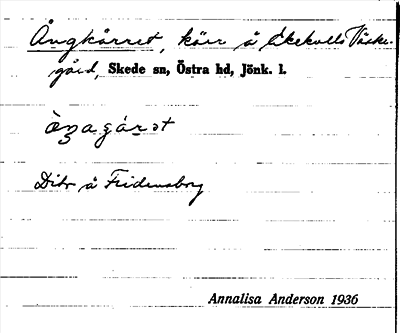 Ångkärret, kärr å Ekekulls Väster-
gård, Skede sn, Östra hd, Jönk. l.
Dito å Fridensborg
Annalisa Anderson 1936